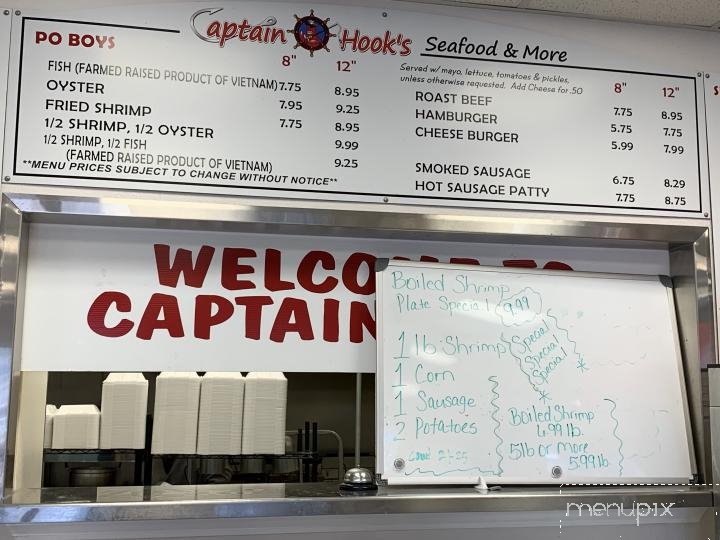 Captain Hook's Seafood & More
PO BOYS
8" 12"
FISH (FARMED RAISED PRODUCT OF VIETNAM) 7.75 8.95
OYSTER 7.95 9.25
FRIED SHRIMP 7.75 8.95
1/2 SHRIMP, 1/2 OYSTER 9.99
1/2 SHRIMP, 1/2 FISH
(FARMED RAISED PRODUCT OF VIETNAM) 9.25
**MENU PRICES SUBJECT TO CHANGE WITHOUT NOTICE**
Served w/ mayo, lettuce, tomatoes & pickles,
unless otherwise requested. Add Cheese for .50
8" 12"
ROAST BEEF 7.75 8.95
HAMBURGER 5.75 7.75
CHEESE BURGER 5.99 7.99
SMOKED SAUSAGE 6.75 8.29
HOT SAUSAGE PATTY 7.75 8.75
WELCOME TO
CAPTAIN
Boiled Shrimp
Plate Special 9.99
1 lb Shrimp
1 Corn
1 Sausage
2 Potatoes
Special
Special
Special
Boiled Shrimp
4.99 lb.
5lb or more
5.99 lb
menupix